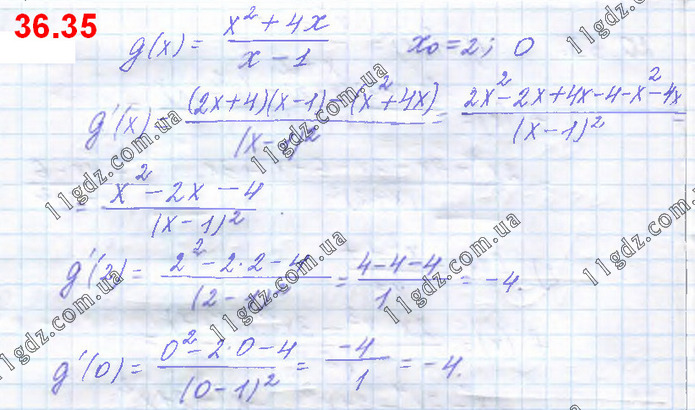 36.35
g(x) = (x² + 4x)/(x − 1)    x₀ = 2; 0
g'(x) = ((2x+4)(x−1) − (x² + 4x))/(x − 1)² = (2x² − 2x + 4x − 4 − x² − 4x)/(x − 1)² =
= (x² − 2x − 4)/(x − 1)².
g'(2) = (2² − 2·2 − 4)/(2 − 1)² = (4 − 4 − 4)/1 = −4.
g'(0) = (0² − 2·0 − 4)/(0 − 1)² = (−4)/1 = −4.
11gdz.com.ua
11gdz.com.ua
11gdz.com.ua
11gdz.com.ua
11gdz.com.ua
11gdz.com.ua
11gdz.com.ua